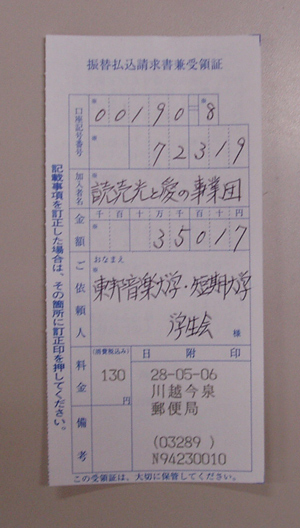 振替払込請求書兼受領証
口座記号番号
00190 8
72319
加入者名
読売光と愛の事業団
金額
千 百 十 万 千 百 十 円
35017
ご依頼人
おなまえ
東邦音楽大学・短期大学
学生会
様
料金
(消費税込み)
130
円
備考
日附印
28-05-06
川越今泉
郵便局
(03289 )
N94230010
記載事項を訂正した場合は、その箇所に訂正印を押してください。
この受領証は、大切に保管してください。